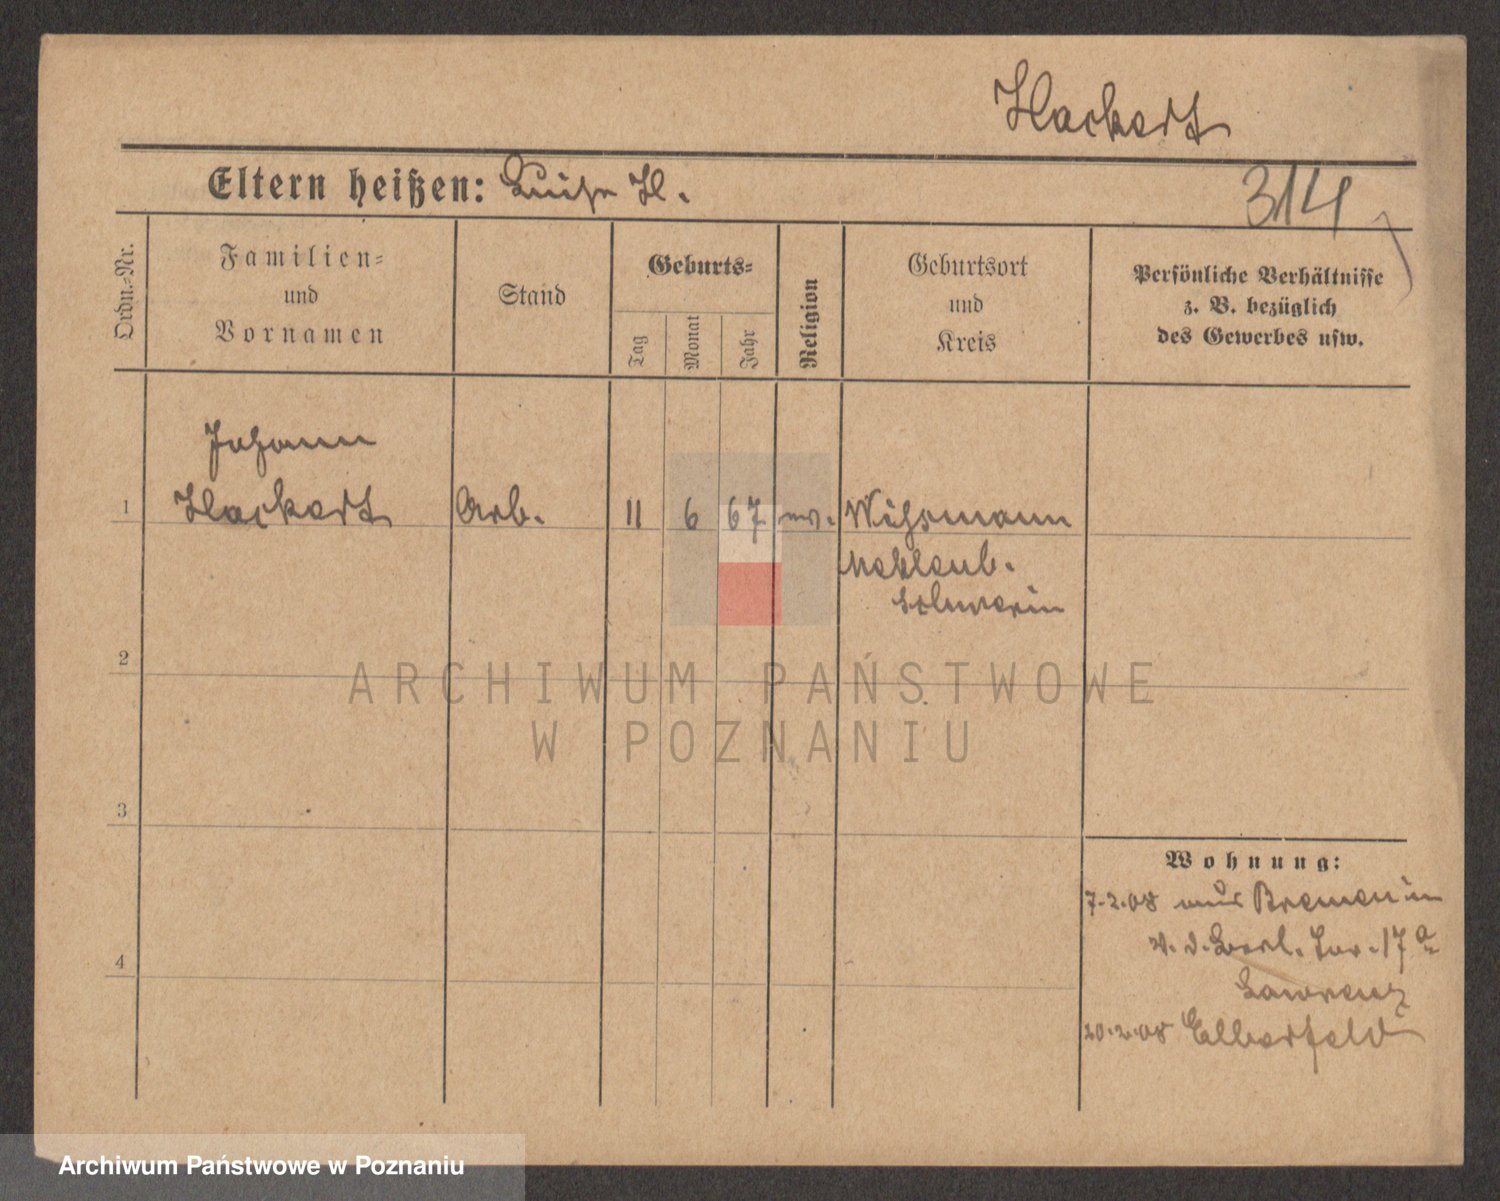 Hackert
Eltern heißen: Luise H.
314
Ordn.-Nr.
Familien-
und
Vornamen
Stand
Geburts-
Tag
Monat
Jahr
Religion
Geburtsort
und
Kreis
Persönliche Verhältnisse
z. B. bezüglich
des Gewerbes usw.
Johann
1 Hackert Arb. 11 6 67 ev.
Meklenb.
Schwerin
2
ARCHIWUM PAŃSTWOWE
W POZNANIU
3
Wohnung:
7.2.08 aus Bremen in
v. d. Berl. Tor. 17a
Lawrenz
4
20.2.08 Elberfeld
Archiwum Państwowe w Poznaniu